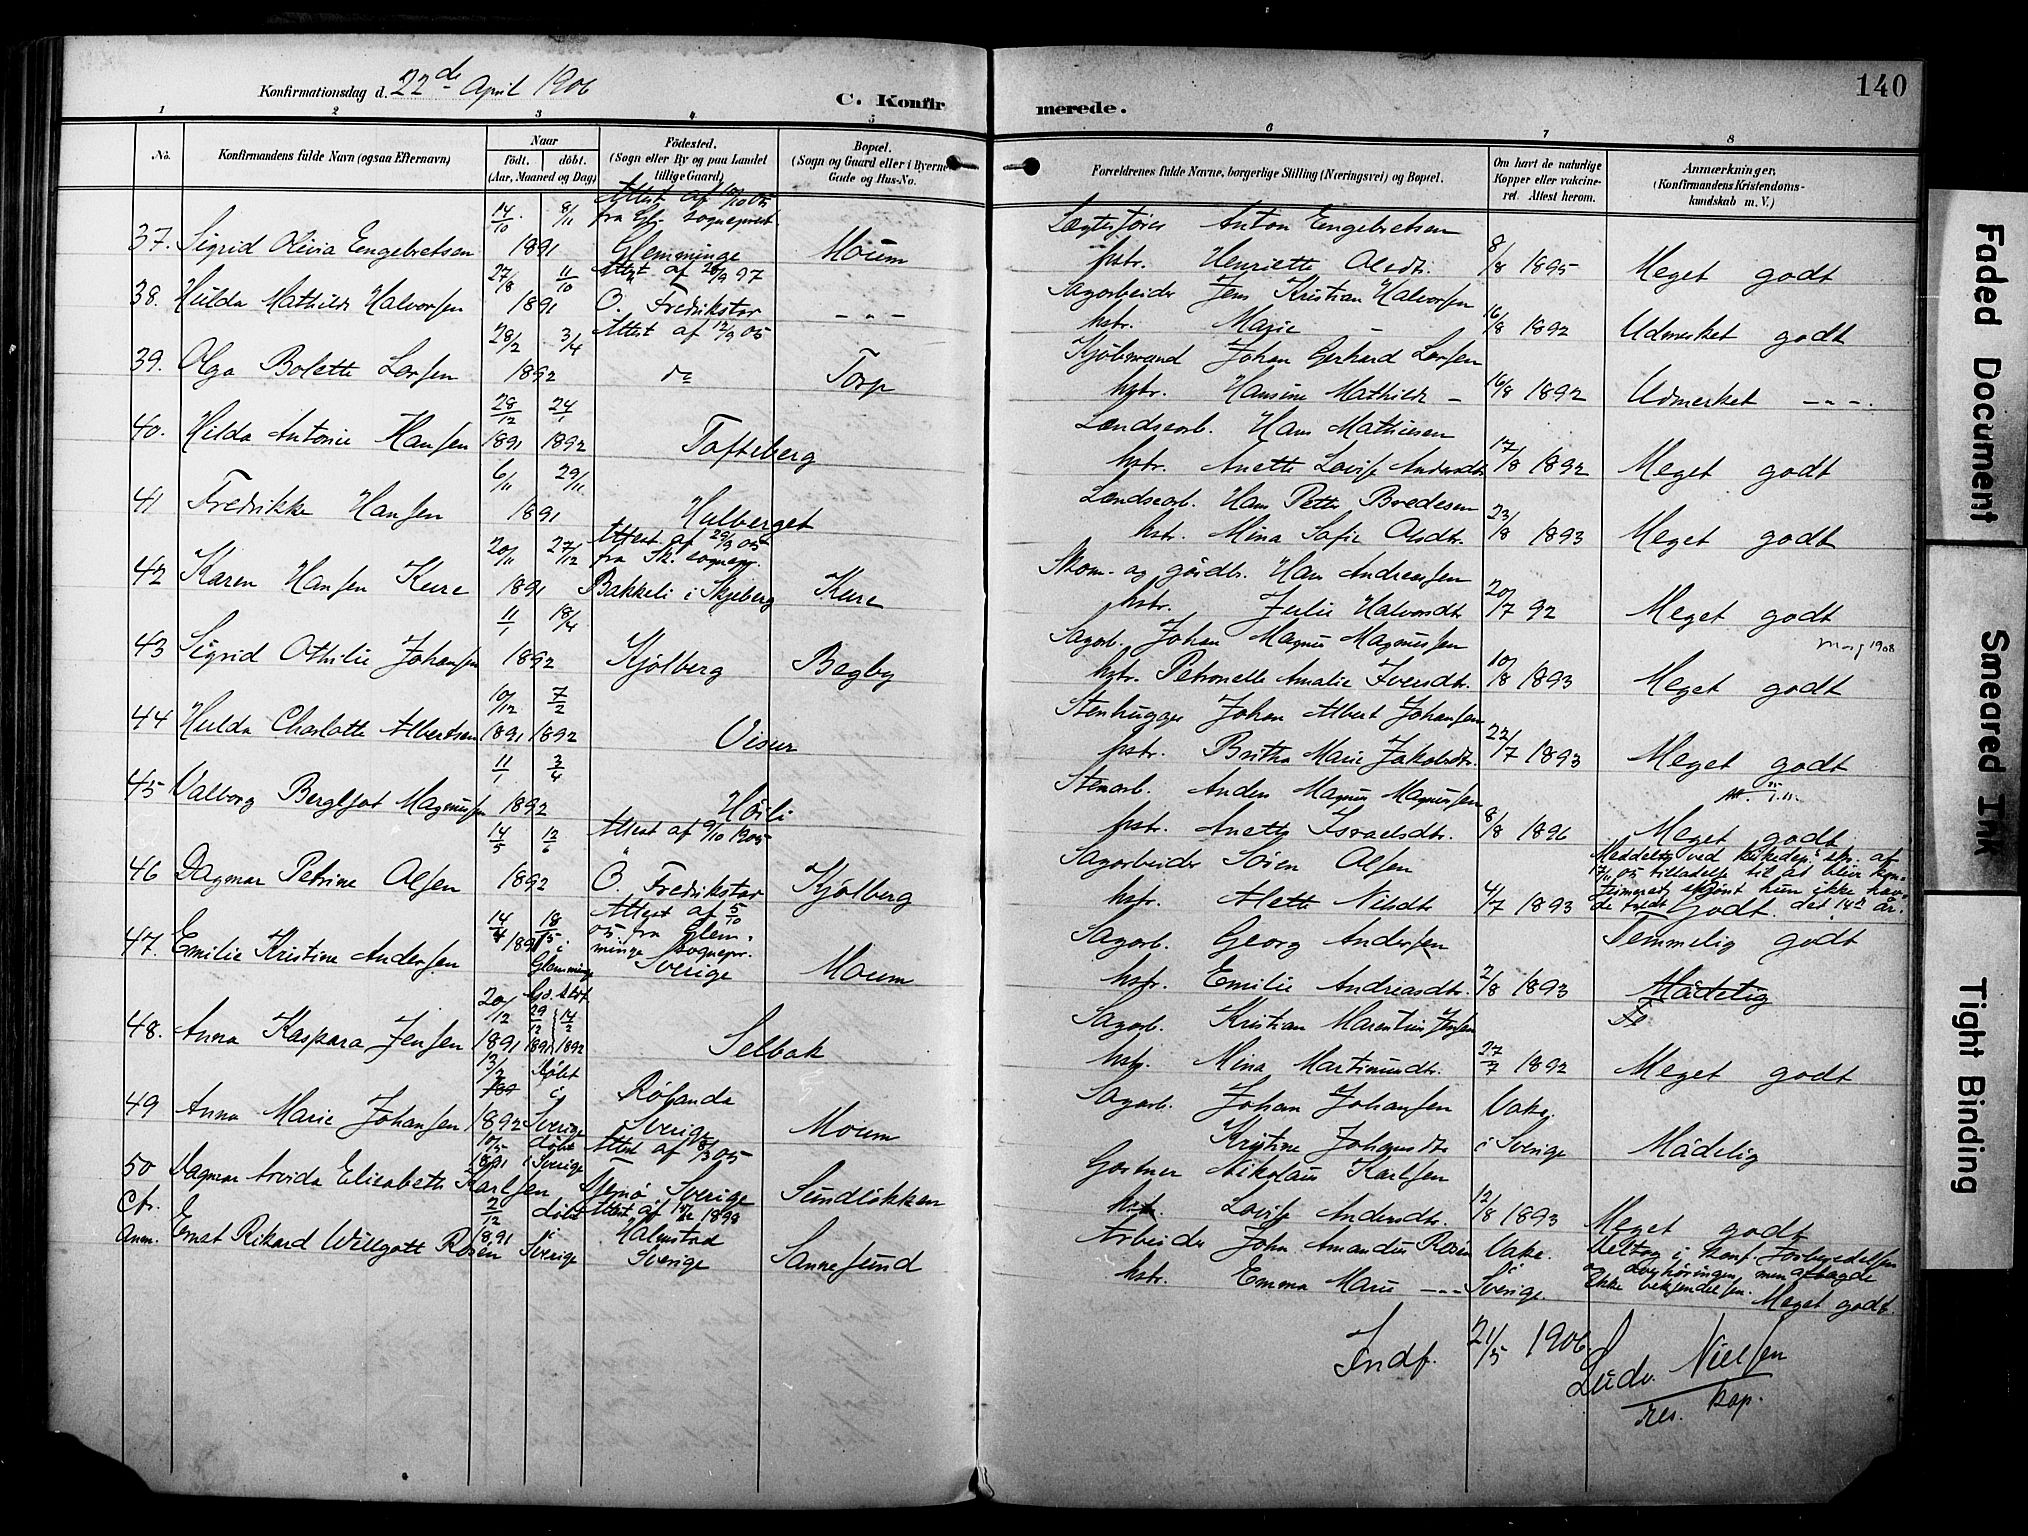 Konfirmationsdag d. 22de April 1906
C. Konfirmerede.
140
1 2 3 4 5 6 7 8
No.
Konfirmandens fulde Navn (ogsaa Efternavn)
Naar
födt. döbt.
(Aar, Maaned og Dag)
Födested.
(Sogn eller By og paa Landet tillige Gaard)
Bopæl.
(Sogn og Gaard eller i Byerne Gade og Hus-No.
Forældrenes fulde Navne, borgerlige Stilling (Næringsvei) og Bopæl.
Om havt de naturlige Kopper eller vakcineret. Attest herom.
Anmerkninger.
(Konfirmandens Kristendomskundskab m. V.)
37. Sigrid Olivia Engebretsen 14/10 8/11 1891 Glemminge Moum
Anton Engebretsen
hstr. Henriette Olsdtr. 8/8 1895 Meget godt
38. Hulda Mathilde Halvorsen 27/8 11/10 1891 Ö. Fredrikstad - " -
Sagarbeider Jens Kristian Halvorsen
hstr. Marie - 16/8 1892 Udmerket godt
39. Olga Bolette Larsen 28/2 3/4 1892 Attest af 12/9 05 do Torp
Johan Gerhard Larsen
hstr. Hansine Mathilde - 16/8 1892 Udmerket - " -
40. Hilda Antonie Hansen 28/12 1891 24/1 1892 Tofteberg
Landsearb. Hans Mathisen
hstr. Anette Lovise Andersdtr. 17/8 1892 Meget godt
41 Fredrikke Hansen 6/11 29/11 1891 Hulberget
Landsearb. Hans Petter Bredesen
hstr. Mina Sofie Olsdtr. 23/8 1893 Meget godt
42 Karen Hansen Kure 20/11 27/12 1891 Attest af 29/9 05 fra Sk. sognepr. Bakkeli i Skjeberg Kure
Skom. og gårdbr. Hans Andreassen
hstr. Julie Halvorsdtr. 20/7 92 Meget godt
43 Sigrid Othilie Johansen 11/1 18/4 1892 Kjölberg Begby
Sagarb. Johan Magnus Magnussen
hstr. Petronelle Amalie Iversdtr. 10/8 1893 Meget godt
1908
44 Hulda Charlotte Albertsen 10/12 1891 7/2 1892 Visur
Stenhugger Johan Albert Johansen
hstr. Britha Marie Jakobsdtr. 22/7 1893 Meget godt
45 Valborg Bergljot Magnussen 11/1 3/4 1892 Höili
Stenarb. Anders Magnus Magnussen
hstr. Anette Israelsdtr. 8/8 1896 Meget godt
46 Dagmar Petrine Olsen 14/5 12/6 1892 Attest af 9/10 1905 Ö. Fredrikstad Kjölberg
Sagarbeider Sören Olsen
hstr. Alette Nilsdtr. 4/7 1893 Meddelt ved kirkedep. skr. af 17/11 05 tilladelse til at blive konfirmeret, skjönt hun ikke havde fyldt det 14de år.
Godt.
47. Emilie Kristine Andersen 14/4 1891 18/5 i Glemminge Attest af 5/10 05 fra Glemminge sognepr. Sverige Moum
Sagarb. Georg Andersen Temmelig godt
hstr. Emilie Andreasdtr. 2/8 1893 Mådelig
48. Anna Kaspara Jensen 20/12 1891 29/12 1891 14/2 1892 Selbak
Sagarb. Kristian Marentius Jensen
hstr. Mina Martinusdtr. 27/7 1892 Meget godt
49 Anna Marie Johansen 13/2 1892 döbt i Sverige Sverige Moum
Sagarb. Johan Johansen Vakc.
Kristine Johannsdtr. i Sverige Mådelig
50 Dagmar Arvida Elisabeth Karlsen 10/5 1891 döbt i Sverige Sverige Sundlökken
Gartner Nikolaus Karlsen
hstr. Lovise Andersdtr. 12/8 1893 Meget godt
Anm. Ernst Rikard Willgott Rosén 2/12 1891 döbt i Sverige Halmstad Sverige Sannesund
Arbeider John Amandus Rosén Vakc. i
hstr. Emma Marie - " - Sverige.
Deltog i konf. forberedelsen og overhöringen, men aflagde ikke bekjendelsen. Meget godt
Indf. 21/5 1906
Ludv. Nielsen
res. kap.
Faded Document
Smeared Ink
Tight Binding